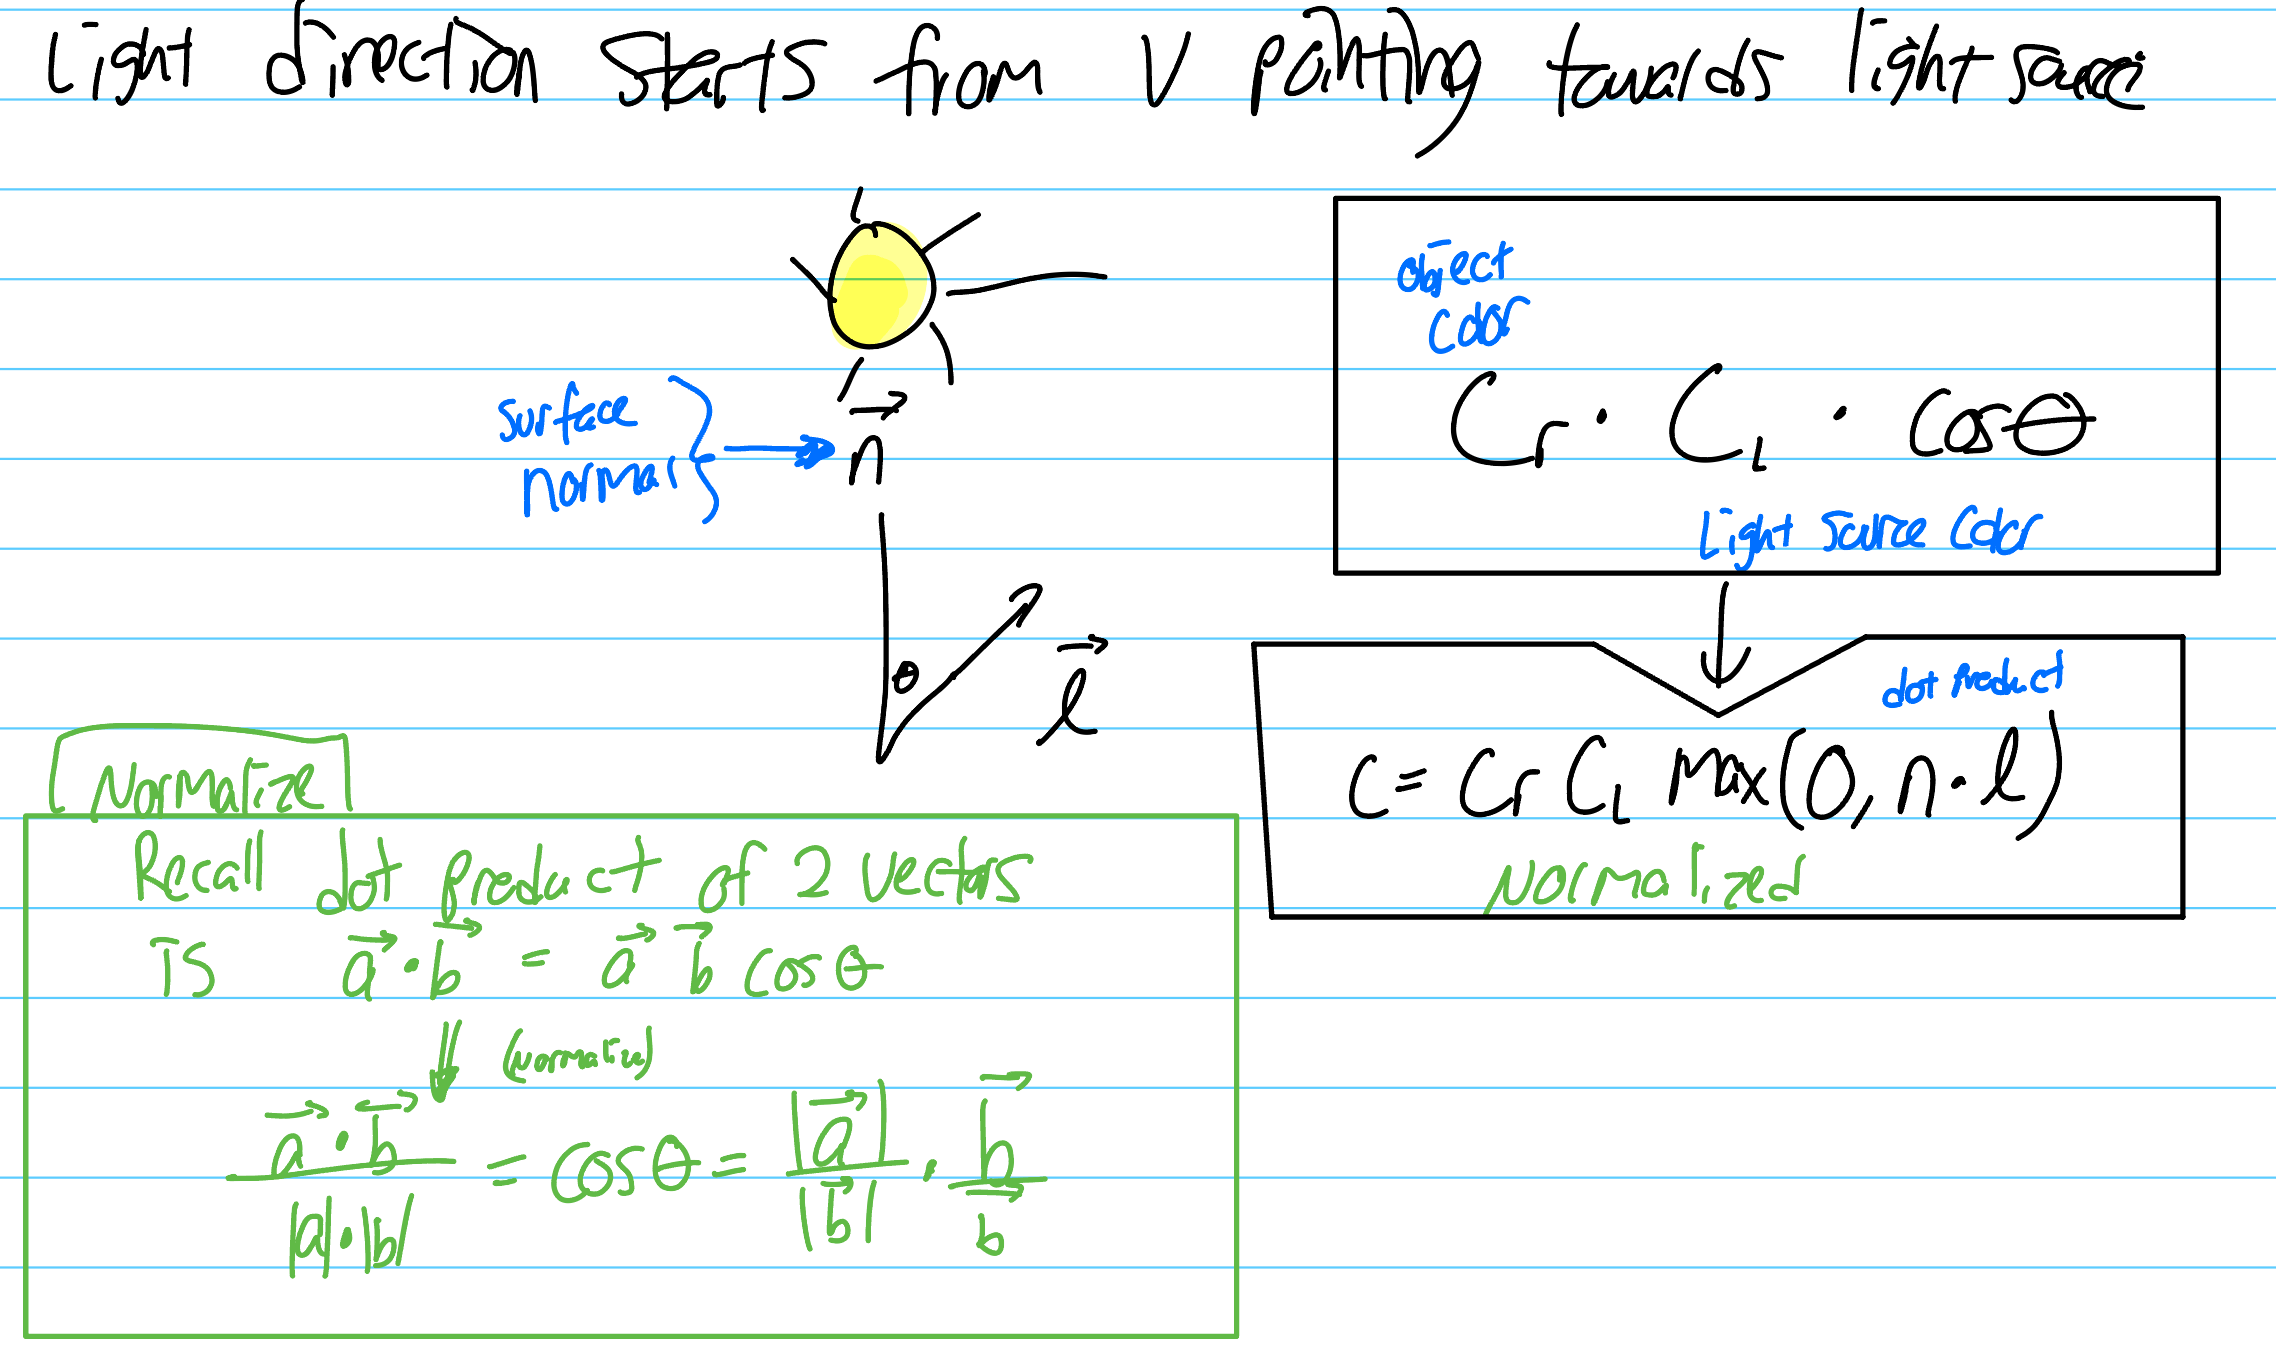 Light direction starts from V pointing towards light source
object
color
Cr · CL · cosθ
Light source color
surface
normal
n⃗
θ
l⃗
dot product
C = Cr CL max(0, n·l)
Normalized
Normalize
Recall dot product of 2 vectors
is a⃗·b⃗ = a⃗ b⃗ cosθ
(normalize)
a⃗·b⃗ / |a|·|b| = cosθ = |a⃗| / |b⃗| · b⃗ / b⃗